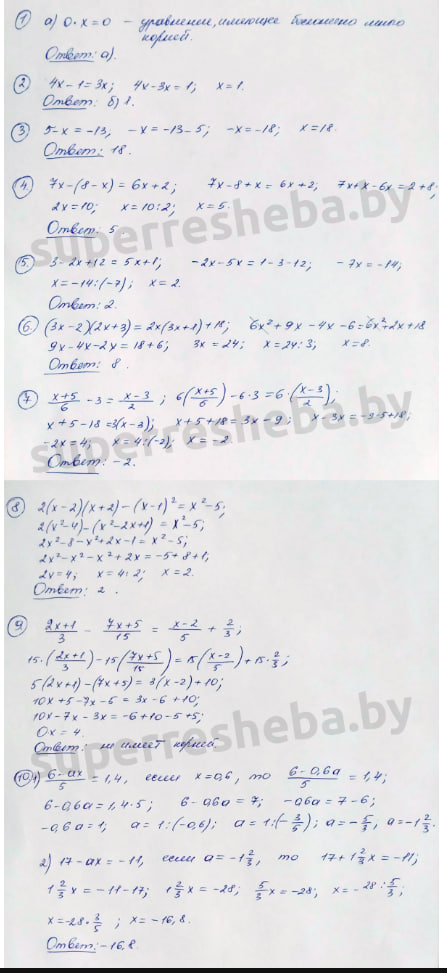 ① а) 0·x=0 – уравнение, имеющее бесконечно много
корней.
Ответ: а).
② 4x-1=3x; 4x-3x=1; x=1.
Ответ: б) 1.
③ 5-x=-13, -x=-13-5; -x=-18; x=18.
Ответ: 18.
④ 7x-(8-x)=6x+2; 7x-8+x=6x+2; 7x+x-6x=2+8;
2x=10; x=10:2; x=5.
Ответ: 5
superresheba.by
⑤ 3-2x+12=5x+1; -2x-5x=1-3-12; -7x=-14;
x=-14:(-7); x=2.
Ответ: 2.
⑥ (3x-2)(2x+3)=2x(3x+1)+18; 6x²+9x-4x-6=6x²+2x+18
9x-4x-2x=18+6; 3x=24; x=24:3; x=8.
Ответ: 8.
⑦ (x+5)/6 - 3 = (x-3)/2; 6((x+5)/6)-6·3=6·((x-3)/2);
x+5-18=3(x-3); x+5-18=3x-9; x-3x=-9-5+18;
-2x=4; x=4:(-2); x=-2
superresheba.by
Ответ: -2.
⑧ 2(x-2)(x+2)-(x-1)²=x²-5;
2(x²-4)-(x²-2x+1)=x²-5;
2x²-8-x²+2x-1=x²-5;
2x²-x²-x²+2x=-5+8+1,
2x=4; x=4:2; x=2.
Ответ: 2.
⑨ (2x+1)/3 - (7x+5)/15 = (x-2)/5 + 2/3;
15·((2x+1)/3)-15((7x+5)/15)=15((x-2)/5)+15·2/3;
5(2x+1)-(7x+5)=3(x-2)+10;
10x+5-7x-5=3x-6+10;
10x-7x-3x=-6+10-5+5;
0x=4.
superresheba.by
Ответ: не имеет корней
⑩ 1) (6-ax)/5=1,4, если x=0,6, то (6-0,6a)/5=1,4;
6-0,6a=1,4·5; 6-0,6a=7; -0,6a=7-6;
-0,6a=1; a=1:(-0,6); a=1:(-3/5); a=-5/3, a=-1 2/3.
2) 17-ax=-11, если a=-1 2/3, то 17+1 2/3x=-11;
1 2/3x=-11-17; 1 2/3x=-28; 5/3x=-28; x=-28:5/3;
x=-28·3/5; x=-16,8.
Ответ: -16,8.